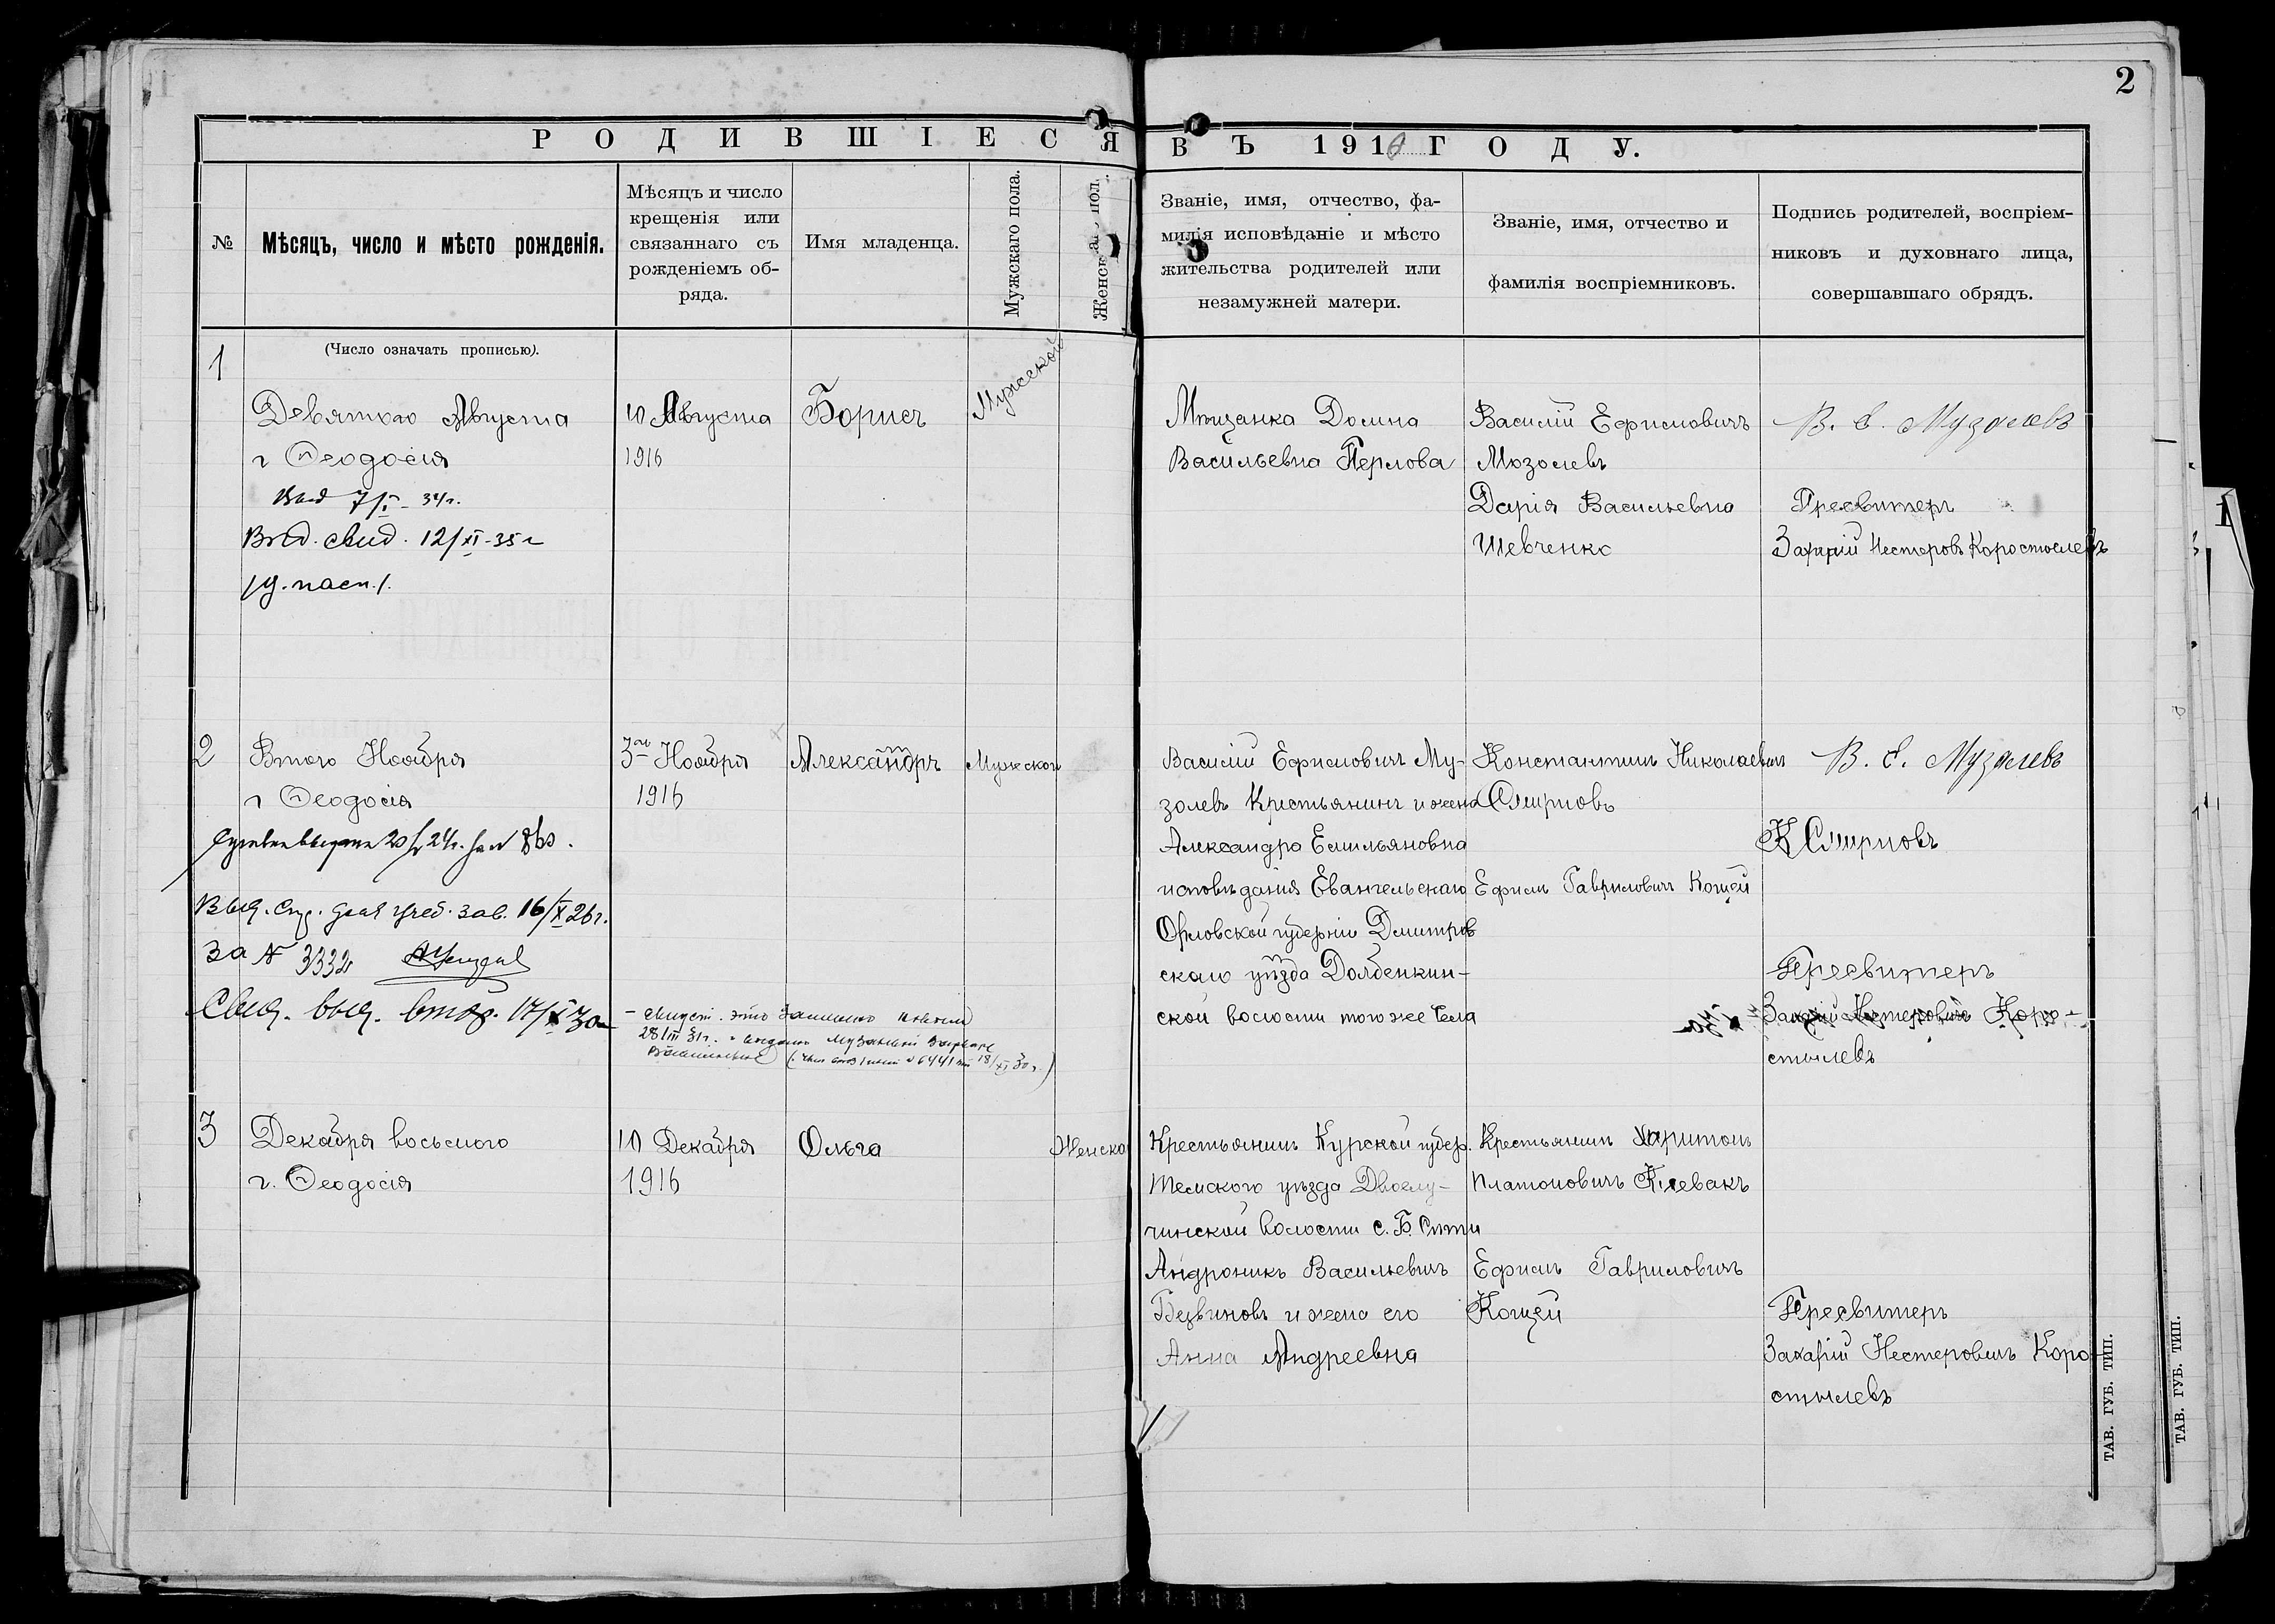 2
РОДИВШІЕСЯ ВЪ 1916 ГОДУ.
№
Мѣсяцъ, число и мѣсто рожденія.
Мѣсяцъ и число
крещенія или
связаннаго съ
рожденіемъ об-
ряда.
Имя младенца.
Мужскаго пола.
Званіе, имя, отчество, фа-
милія исповѣданіе и мѣсто
жительства родителей или
незамужней матери.
Званіе, имя, отчество и
фамилія воспріемниковъ.
Подпись родителей, воспріем-
никовъ и духовнаго лица,
совершавшаго обрядъ.
(Число означать прописью).
1
Девятого Августа
г Ѳеодосія
7/I - 34г.
Выд. свид. 12/XI-35г
10 Августа
1916
Борисъ
Мужской
Мѣщанка
Васильевна Перлова
Василій Ефимовичъ
Мозолевъ
Дарія Васильевна
Шевченко
В. Е. Музалевъ
Пресвитеръ
Захарій Нестеровъ Коростылевъ
2
Втого Ноября
г Ѳеодосія
Выд. для учеб. зав. 16/X 26г.
за № 3332
Свид. выд. 17/X 30г
3го Ноября
1916
Александръ
Мужской
28/III 31г.
Василій Ефимовичъ Му-
золевъ Крестьянинъ и жена
Александра Емильяновна
исповѣданія Евангельскаго
Орловской губерніи Дмитров
скаго уѣзда Долбенкин-
ской волости того же Села
Константинъ Николаевичъ
Смирновъ
Ефимъ Гавриловичъ Кощей
В. Е. Музалевъ
К Смирновъ
Пресвитеръ
Захарій Нестеровичъ Коро-
стылевъ
3
Декабря восьмого
г. Ѳеодосія
10 Декабря
1916
Ольга
Женско
Крестьянинъ Курской губер.
уѣзда Двоелу-
чинской волости с. Б.
Андроникъ Васильевичъ
и жена его
Анна Андреевна
Крестьянинъ Харитонъ
Платоновичъ
Ефимъ Гавриловичъ
Кощей
Пресвитеръ
Захарій Нестеровичъ Коро
стылевъ
ТАВ. ГУБ. ТИП.
ТАВ. ГУБ. ТИП.